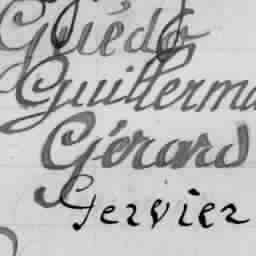 Guédo
Guillerma
Gérard
Gervier